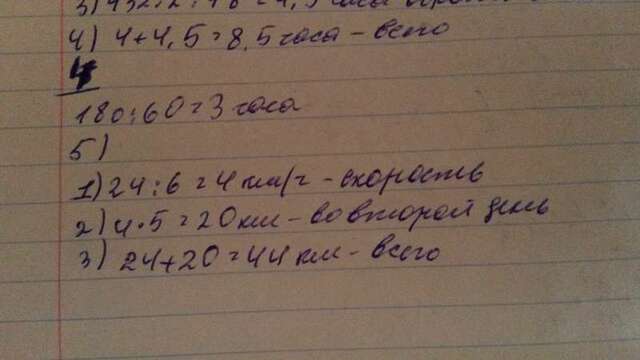 4) 4+4,5=8,5 часа - всего
4
180:60=3 часа
5)
1) 24:6=4 км/ч - скорость
2) 4·5=20 км - во второй день
3) 24+20=44 км - всего